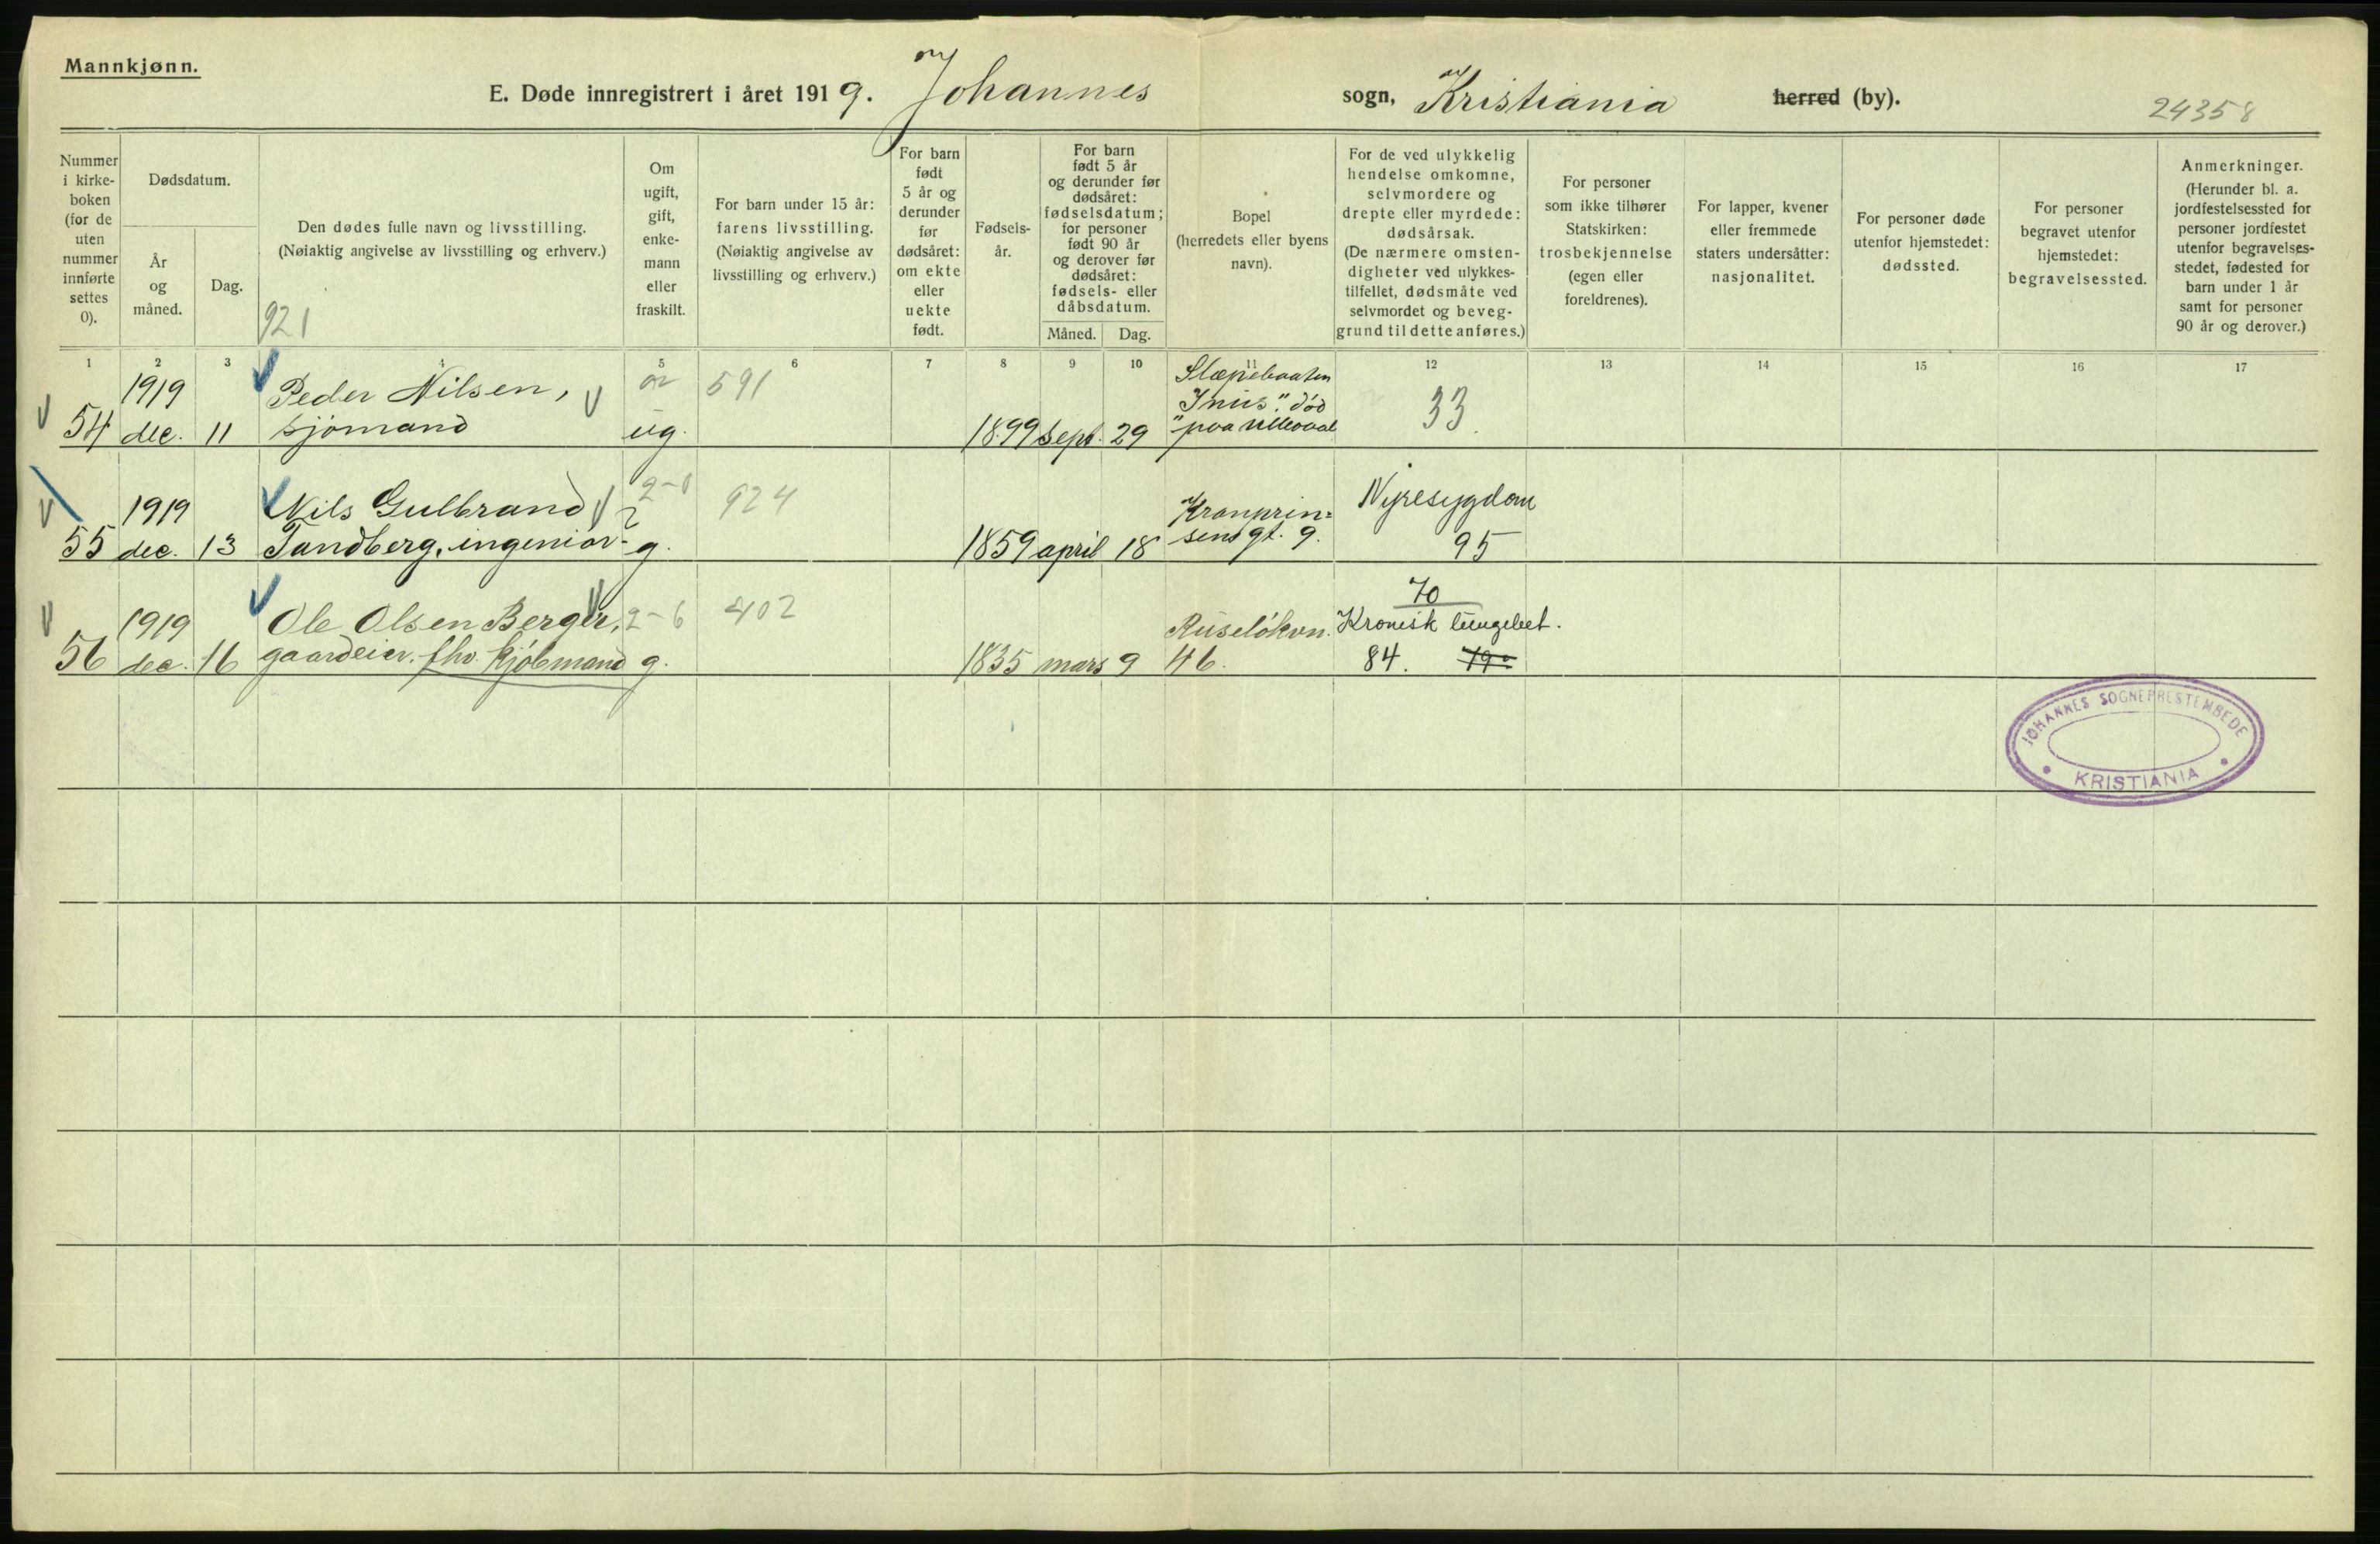 Mannkjønn.
E. Døde innregistrert i året 1919. Johannes sogn, Kristiania herred (by). 24358
Nummer i kirke-boken (for de uten nummer innførte settes 0).
Dødsdatum.
År og måned.
Dag.
Den dødes fulle navn og livsstilling.
(Nøiaktig angivelse av livsstilling og erhverv.)
921
Om ugift, gift, enke-mann eller fraskilt.
For barn under 15 år: farens livsstilling.
(Nøiaktig angivelse av livsstilling og erhverv.)
For barn født 5 år og derunder før dødsåret: om ekte eller uekte født.
Fødsels-år.
For barn født 5 år og derunder før dødsåret: fødselsdatum; for personer født 90 år og derover før dødsåret: fødsels- eller dåbsdatum.
Måned. Dag.
Bopel (herredets eller byens navn).
For de ved ulykkelig hendelse omkomne, selvmordere og drepte eller myrdede: dødsårsak.
(De nærmere omsten-digheter ved ulykkes-tilfellet, dødsmåte ved selvmordet og beveg-grund til dette anføres.)
For personer som ikke tilhører Statskirken: trosbekjennelse (egen eller foreldrenes).
For lapper, kvener eller fremmede staters undersåtter: nasjonalitet.
For personer døde utenfor hjemstedet: dødssted.
For personer begravet utenfor hjemstedet: begravelsessted.
Anmerkninger.
(Herunder bl. a. jordfestelsessted for personer jordfestet utenfor begravelses-stedet, fødested for barn under 1 år samt for personer 90 år og derover.)
1 2 3 4 5 6 7 8 9 10 11 12 13 14 15 16 17
1919 Peder Nilsen, 591 Slæpebaaten
"Inus". død 33
54 dec. 11 sjømand ug. 1899 sept. 29 paa Ullevaal
1919 Nils Gulbrand 2-0 924 Kronprin= Nyresygdom
55 dec. 13 Tandberg, ingeniør g. 1859 april 18 sens gt. 9. 95
70
1919 Ole Olsen Berger, 2-6 402 Ruseløkvn. Kronisk lungebet.
56 dec. 16 gaardeier. fhv. kjøbmand g. 1835 mars 9 46. 84. 19
JOHANNES SOGNEPRESTEMBEDE
KRISTIANIA